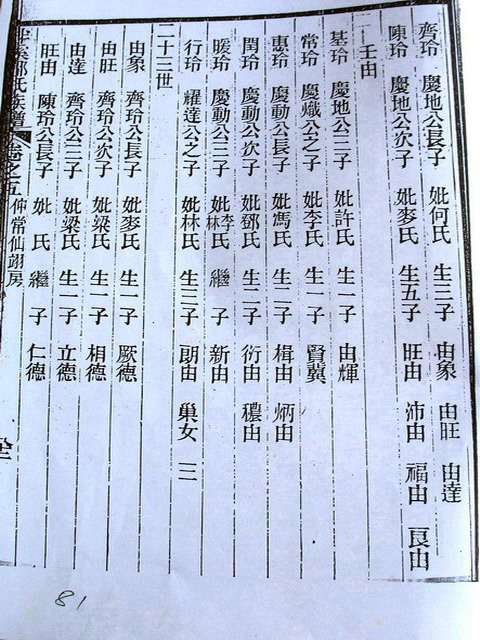 齊玲 慶地公長子 妣何氏 生三子 由象 由旺 由達
陳玲 慶地公次子 妣麥氏 生五子 旺由 沛由 福由 良由
壬由
基玲 慶地公三子 妣許氏 生一子 由輝
常玲 慶熾公之子 妣李氏 生一子 賢冀
惠玲 慶動公長子 妣馮氏 生二子 楫由 炳由
閏玲 慶動公次子 妣鄧氏 生二子 衍由 穠由
暖玲 慶動公三子 妣李林氏 繼子 新由
行玲 燿達公之子 妣林氏 生三子 朗由 巢女 二
二十三世
由象 齊玲公長子 妣麥氏 生一子 厥德
由旺 齊玲公次子 妣梁氏 生一子 相德
由達 齊玲公三子 妣梁氏 生一子 立德
旺由 陳玲公長子 妣 氏 繼子 仁德
氏族譜 卷之五 仲常仙翊房
81